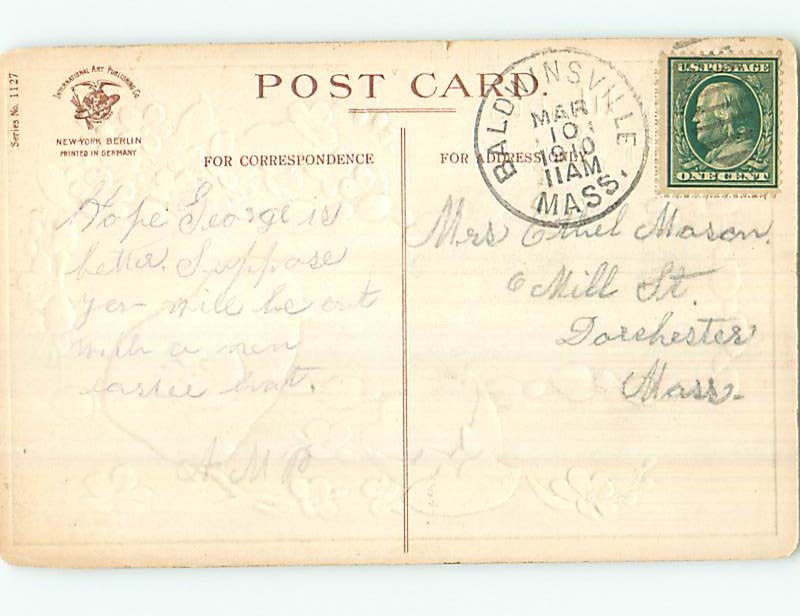 Series No. 1127
INTERNATIONAL ART PUBLISHING CO.
NEW-YORK BERLIN
PRINTED IN GERMANY
POST CARD.
FOR CORRESPONDENCE
FOR ADDRESS ONLY
BALDWINSVILLE
MAR
10
1910
11AM
MASS.
U.S. POSTAGE
ONE CENT
Hope George is
better. Suppose
you will be out
with a new
easter hat.
A M P
Mrs Ethel Mason.
6 Mill St.
Dorchester
Mass.